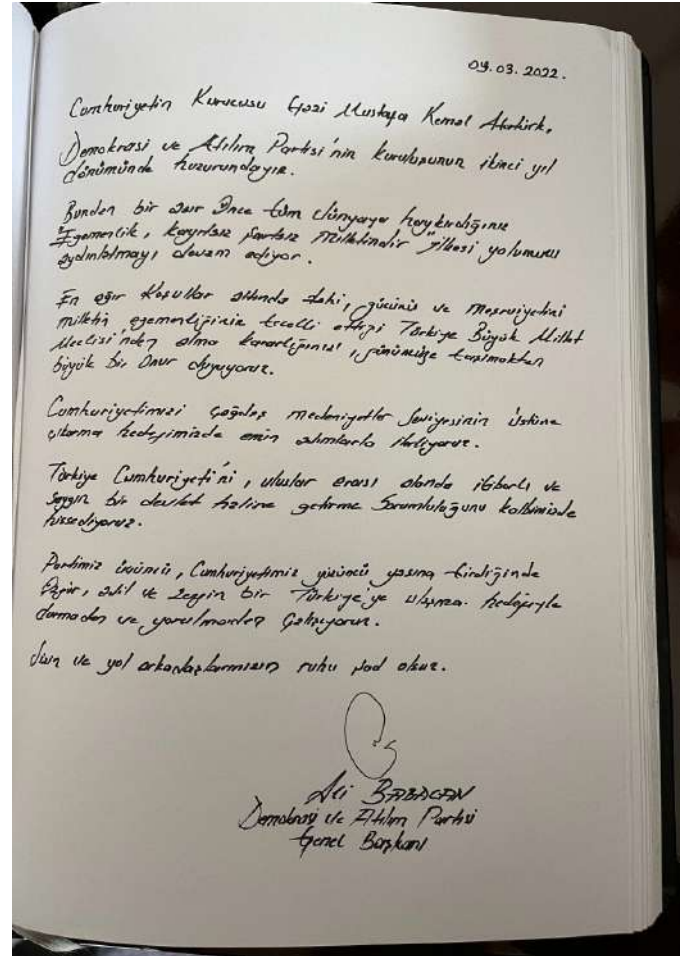 09.03.2022.
Cumhuriyetin Kurucusu Gazi Mustafa Kemal Atatürk,
Demokrasi ve Atılım Partisi'nin kuruluşunun ikinci yıl
dönümünde huzurundayız.
Bundan bir asır Önce tüm dünyaya haykırdığınız
"Egemenlik, kayıtsız şartsız Milletindir" ilkesi yolumuzu
aydınlatmayı devam ediyor.
En ağır Koşullar altında dahi, gücünü ve Meşruiyetini
milletin egemenliğinin tecelli ettiği Türkiye Büyük Millet
Meclisi'nden alma kararlığınızı, günümüze taşımaktan
büyük bir Onur duyuyoruz.
Cumhuriyetimizi Çağdaş medeniyetler Seviyesinin üstüne
çıkarma hedefimizde emin adımlarla ilerliyoruz.
Türkiye Cumhuriyeti'ni, uluslar arası alanda itibarlı ve
Saygın bir devlet haline getirme Sorumluluğunu kalbimizde
hissediyoruz.
Partimiz üçüncü, Cumhuriyetimiz yüzüncü yaşına Girdiğinde
Özgür, adil ve Zengin bir Türkiye'ye ulaşma hedefiyle
durmadan ve yorulmadan Çalışıyoruz.
Sizin ve yol arkadaşlarınızın ruhu şad olsun.
Ali BABACAN
Demokrasi ve Atılım Partisi
Genel Başkanı